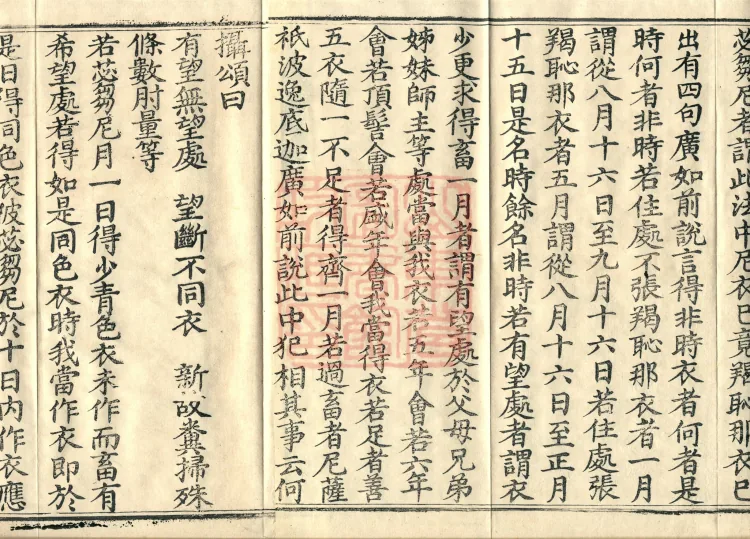 苾芻尼者謂此法中尼衣已竟羯恥那衣已
出有四句廣如前說言得非時衣者何者是
時何者非時若住處不張羯恥那衣者一月
謂從八月十六日至九月十六日若住處張
羯恥那衣者五月謂從八月十六日至正月
十五日是名時餘名非時若有望處者謂衣
少更求得畜一月者謂有望處於父母兄弟
姊妹師主等處當與我衣若五年會若六年
會若頂髻會若盛年會我當得衣若足者善
五衣隨一不足者得齊一月若過畜者尼薩
祇波逸底迦廣如前說此中犯相其事云何
攝頌曰
有望無望處　望斷不同衣　新故糞掃殊
條數肘量等
若苾芻尼月一日得少青色衣未作而畜有
希望處若得如是同色衣時我當作衣即於
是日得同色衣彼苾芻尼於十日內作衣應